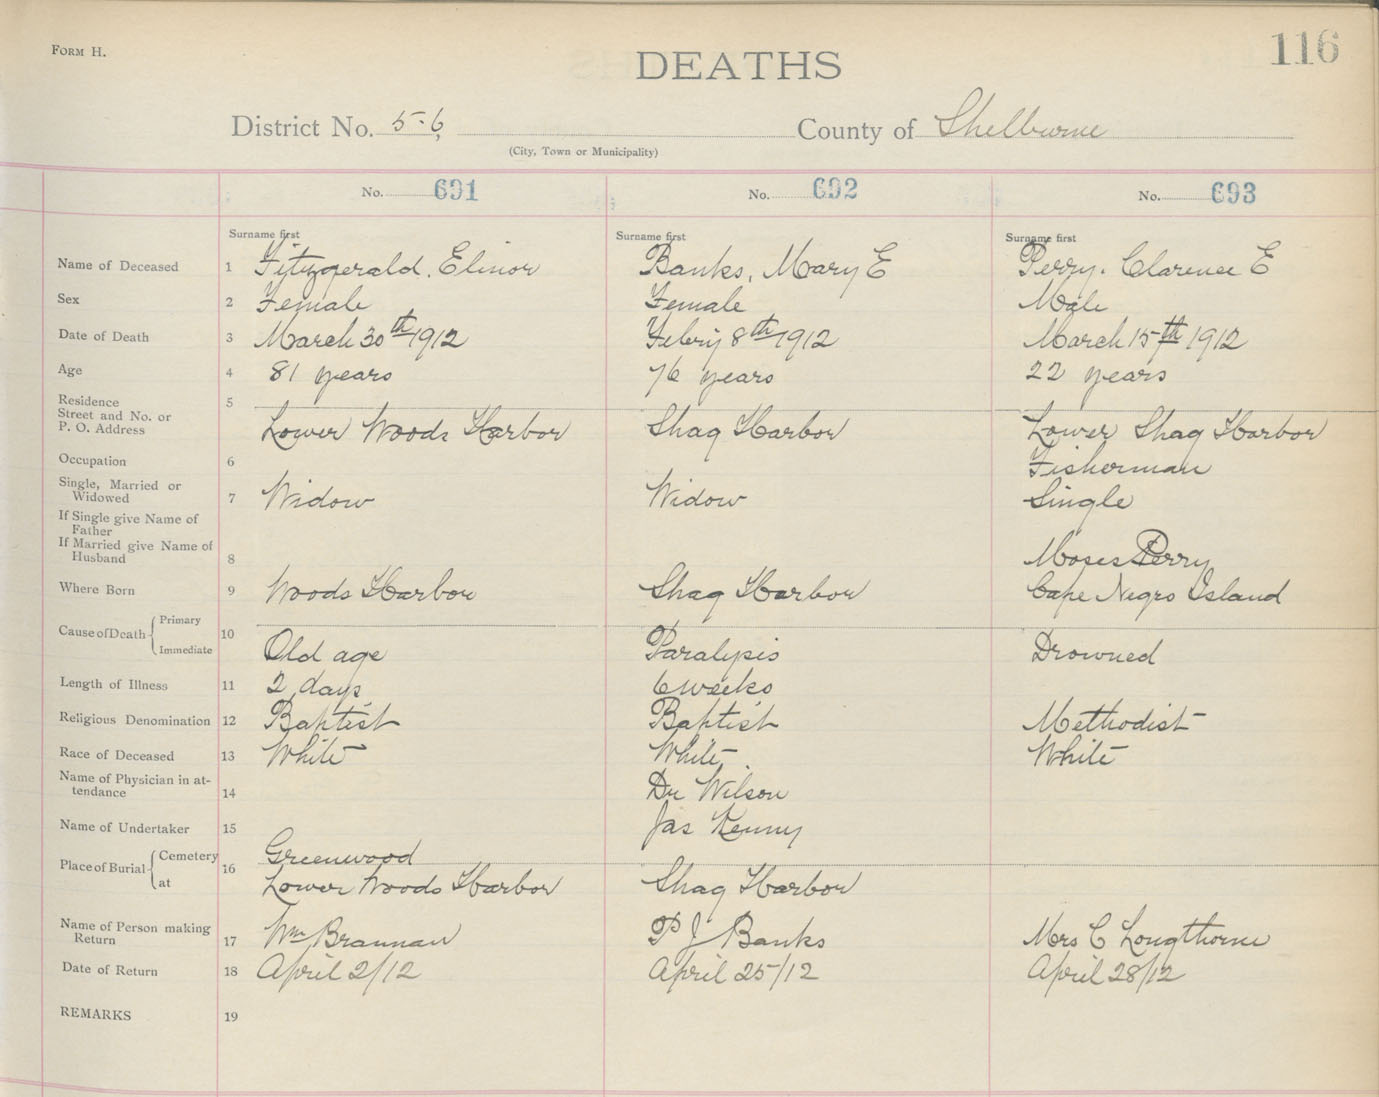 FORM H.
DEATHS
116
District No. 5-6,
County of Shelburne
(City, Town or Municipality)
No. 691
No. 692
No. 693
Surname first
Surname first
Surname first
Name of Deceased 1 Fitzgerald, Elinor Banks, Mary E Perry. Clarence E
Sex 2 Female Female Male
Date of Death 3 March 30th 1912 Febry 8th 1912 March 15th 1912
Age 4 81 years 76 years 22 years
Residence 5
Street and No. or
P. O. Address Lower Woods Harbor Shag Harbor Lower Shag Harbor
Occupation 6 Fisherman
Single, Married or
Widowed 7 Widow Widow Single
If Single give Name of
Father
If Married give Name of
Husband 8 Moses Perry
Where Born 9 Woods Harbor Shag Harbor Cape Negro Island
Cause of Death Primary
10
Immediate Old age Paralysis Drowned
Length of Illness 11 2 days 6 weeks
Religious Denomination 12 Baptist Baptist Methodist
Race of Deceased 13 White White White
Name of Physician in at-
tendance 14 Dr Wilson
Name of Undertaker 15 Jas Kenny
Place of Burial Cemetery 16 Greenwood
at Lower Woods Harbor Shag Harbor
Name of Person making
Return 17 Wm Brannan P J Banks Mrs C Longthorne
Date of Return 18 April 2/12 April 25/12 April 28/12
REMARKS 19